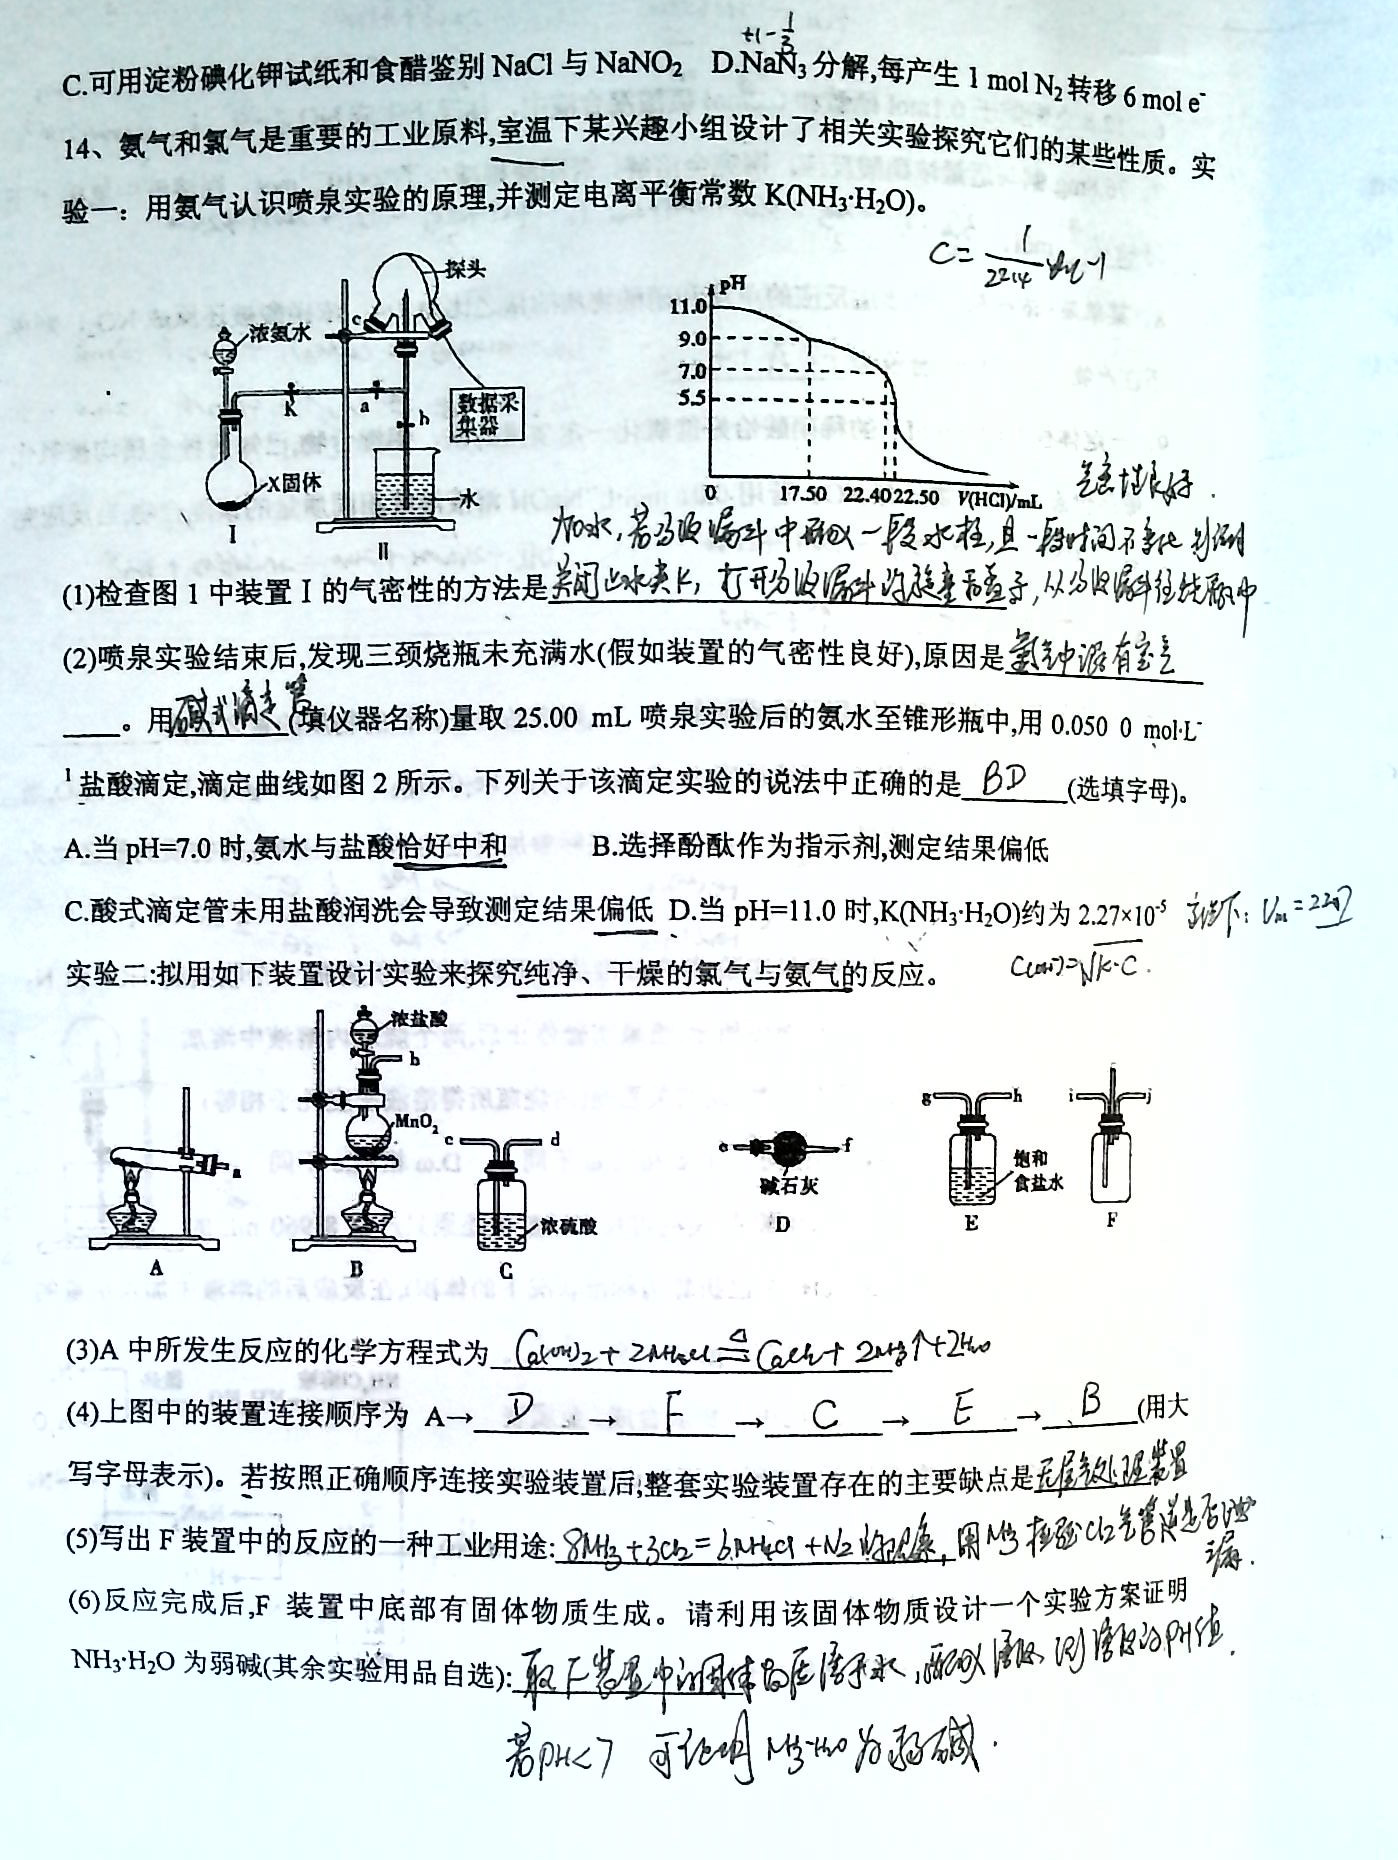 +1 -1/3
C.可用淀粉碘化钾试纸和食醋鉴别 NaCl 与 NaNO₂ D.NaN₃ 分解,每产生 1 mol N₂ 转移 6 mol e⁻
14、氨气和氯气是重要的工业原料,室温下某兴趣小组设计了相关实验探究它们的某些性质。实
验一：用氨气认识喷泉实验的原理,并测定电离平衡常数 K(NH₃·H₂O)。
C=
探头
浓氨水
c
K
a
b
数据采
集器
X固体
水
I
II
pH
11.0
9.0
7.0
5.5
0 17.50 22.40 22.50 V(HCl)/mL
气密性良好.
加水,若分液漏斗中形成一段水柱,且一段时间不变化 则说明
(1)检查图 1 中装置 I 的气密性的方法是关闭止水夹K,打开分液漏斗的旋塞和盖子,从分液漏斗往烧瓶中
(2)喷泉实验结束后,发现三颈烧瓶未充满水(假如装置的气密性良好),原因是氨气中混有空气
。用碱式滴定管(填仪器名称)量取 25.00 mL 喷泉实验后的氨水至锥形瓶中,用 0.050 0 mol·L⁻
¹ 盐酸滴定,滴定曲线如图 2 所示。下列关于该滴定实验的说法中正确的是 BD (选填字母)。
A.当 pH=7.0 时,氨水与盐酸恰好中和 B.选择酚酞作为指示剂,测定结果偏低
C.酸式滴定管未用盐酸润洗会导致测定结果偏低 D.当 pH=11.0 时,K(NH₃·H₂O)约为 2.27×10⁻⁵
实验二:拟用如下装置设计实验来探究纯净、干燥的氯气与氨气的反应。 C(OH⁻)=√K·C.
浓盐酸
b
MnO₂
a
c d
浓硫酸
e f
碱石灰
g h
饱和
食盐水
i j
A B C D E F
(3)A 中所发生反应的化学方程式为 Ca(OH)₂+2NH₄Cl △= CaCl₂+2NH₃↑+2H₂O
(4)上图中的装置连接顺序为 A→ D → F → C → E → B (用大
写字母表示)。若按照正确顺序连接实验装置后,整套实验装置存在的主要缺点是无尾气处理装置
(5)写出 F 装置中的反应的一种工业用途: 8NH₃+3Cl₂=6NH₄Cl+N₂ 用NH₃检验Cl₂气管道是否泄
漏.
(6)反应完成后,F 装置中底部有固体物质生成。请利用该固体物质设计一个实验方案证明
NH₃·H₂O 为弱碱(其余实验用品自选): 取F装置中的固体物质溶于水,配成溶液 测溶液的PH值.
若PH<7 可证明 NH₃·H₂O为弱碱.